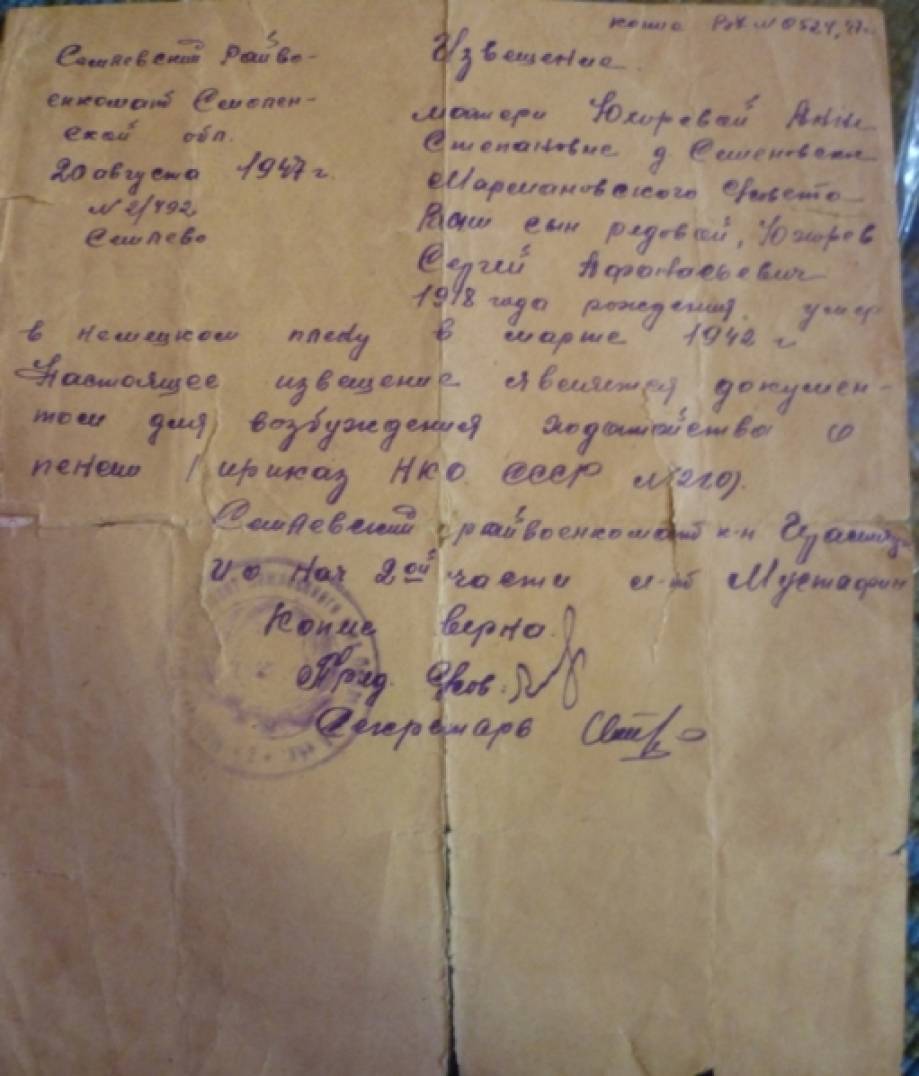 копия
Семлевский Райво-
енкомат Смолен-
ской обл.
20 августа 1947 г.
№ 2/492
Семлево
Извещение
матери Юхоревой Анне
Степановне д. Семеновская
Мармановского Совета
Ваш сын рядовой,
Сергей Афанасьевич
1918 года рождения умер
в немецком плену в марте 1942 г
Настоящее извещение является докумен-
том для возбуждения ходатайства о
пенсии (приказ НКО СССР № 220).
Семлевский райвоенкомат к-н
И о нач 2ой части л-т Мустафин
Копия верна.
Пред. Сов.
Секретарь